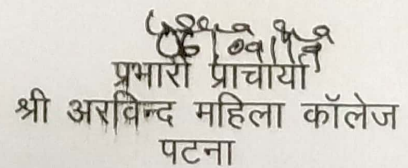 प्रभारी प्राचार्या
श्री अरविन्द महिला कॉलेज
पटना